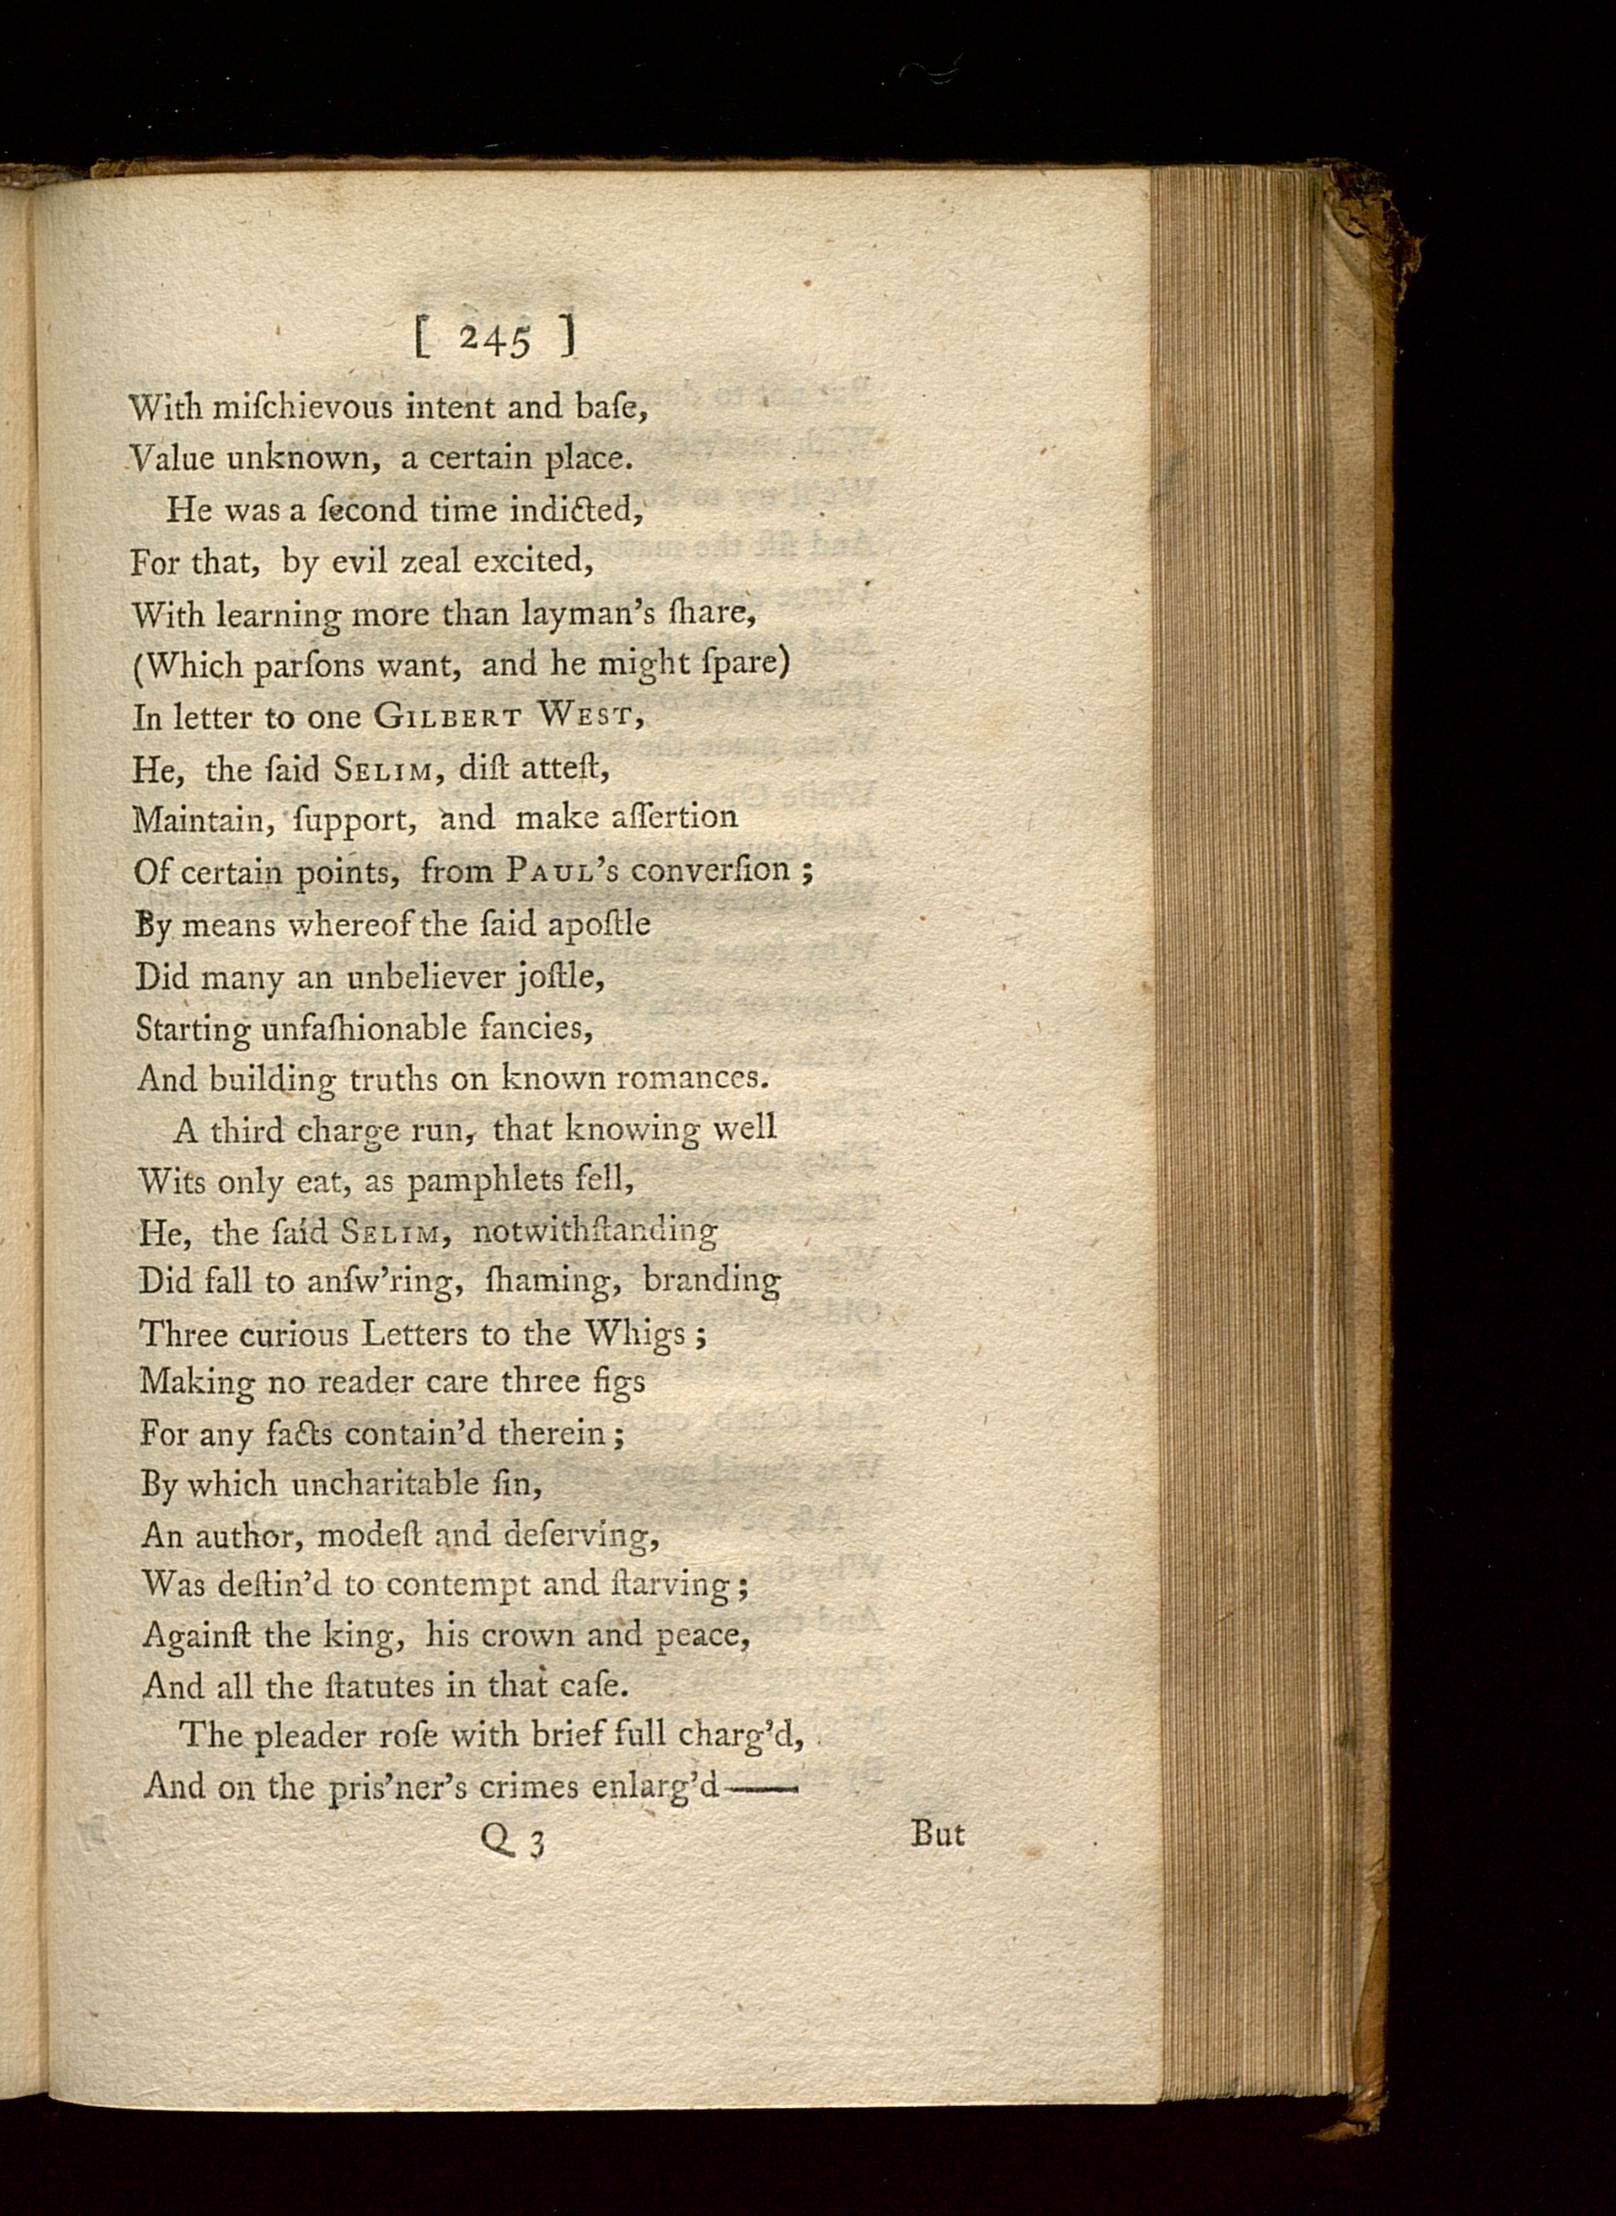 [ 245 ]
With miſchievous intent and baſe,
Value unknown, a certain place.
He was a ſecond time indicted,
For that, by evil zeal excited,
With learning more than layman's ſhare,
(Which parſons want, and he might ſpare)
In letter to one GILBERT WEST,
He, the ſaid SELIM, diſt atteſt,
Maintain, ſupport, and make aſſertion
Of certain points, from PAUL's converſion ;
By means whereof the ſaid apoſtle
Did many an unbeliever joſtle,
Starting unfaſhionable fancies,
And building truths on known romances.
A third charge run, that knowing well
Wits only eat, as pamphlets ſell,
He, the ſaid SELIM, notwithſtanding
Did fall to anſw'ring, ſhaming, branding
Three curious Letters to the Whigs ;
Making no reader care three figs
For any facts contain'd therein ;
By which uncharitable ſin,
An author, modeſt and deſerving,
Was deſtin'd to contempt and ſtarving ;
Againſt the king, his crown and peace,
And all the ſtatutes in that caſe.
The pleader roſe with brief full charg'd,
And on the pris'ner's crimes enlarg'd——
Q 3 But